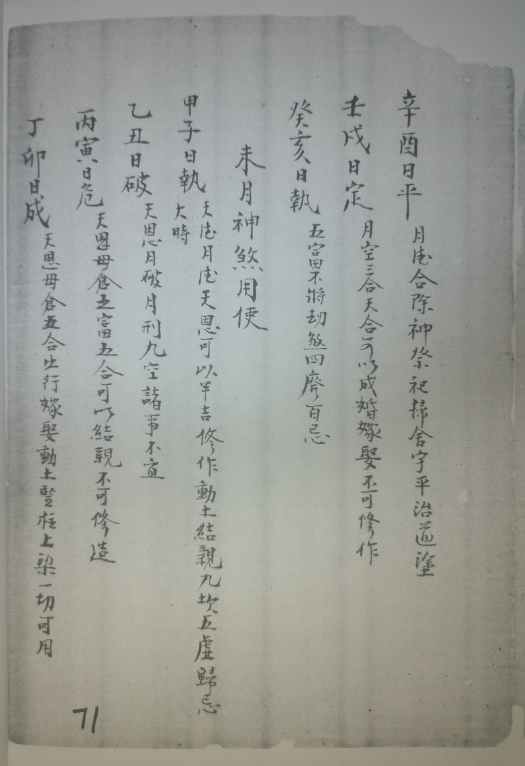 辛酉日平 月德合除神祭祀掃舍宇平治道塗
壬戌日定 月空三合天合可以成婚嫁娶不可修作
癸亥日執 五富不將劫煞四廢百忌
未月神煞用使
甲子日執 天德月德天恩可以半吉修作動土結親九坎五虛歸忌
大時
乙丑日破 天恩月破月刑九空諸事不宜
丙寅日危 天恩母倉五富五合可以結親不可修造
丁卯日成 天恩母倉五合出行嫁娶動土豎柱上梁一切可用
71